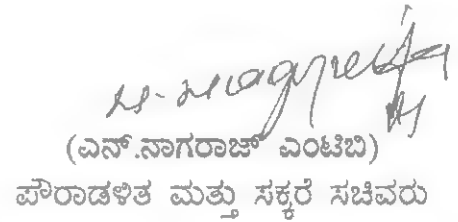 (ಎನ್.ನಾಗರಾಜ್ ಎಂಟಿಬಿ)
ಪೌರಾಡಳಿತ ಮತ್ತು ಸಕ್ಕರೆ ಸಚಿವರು